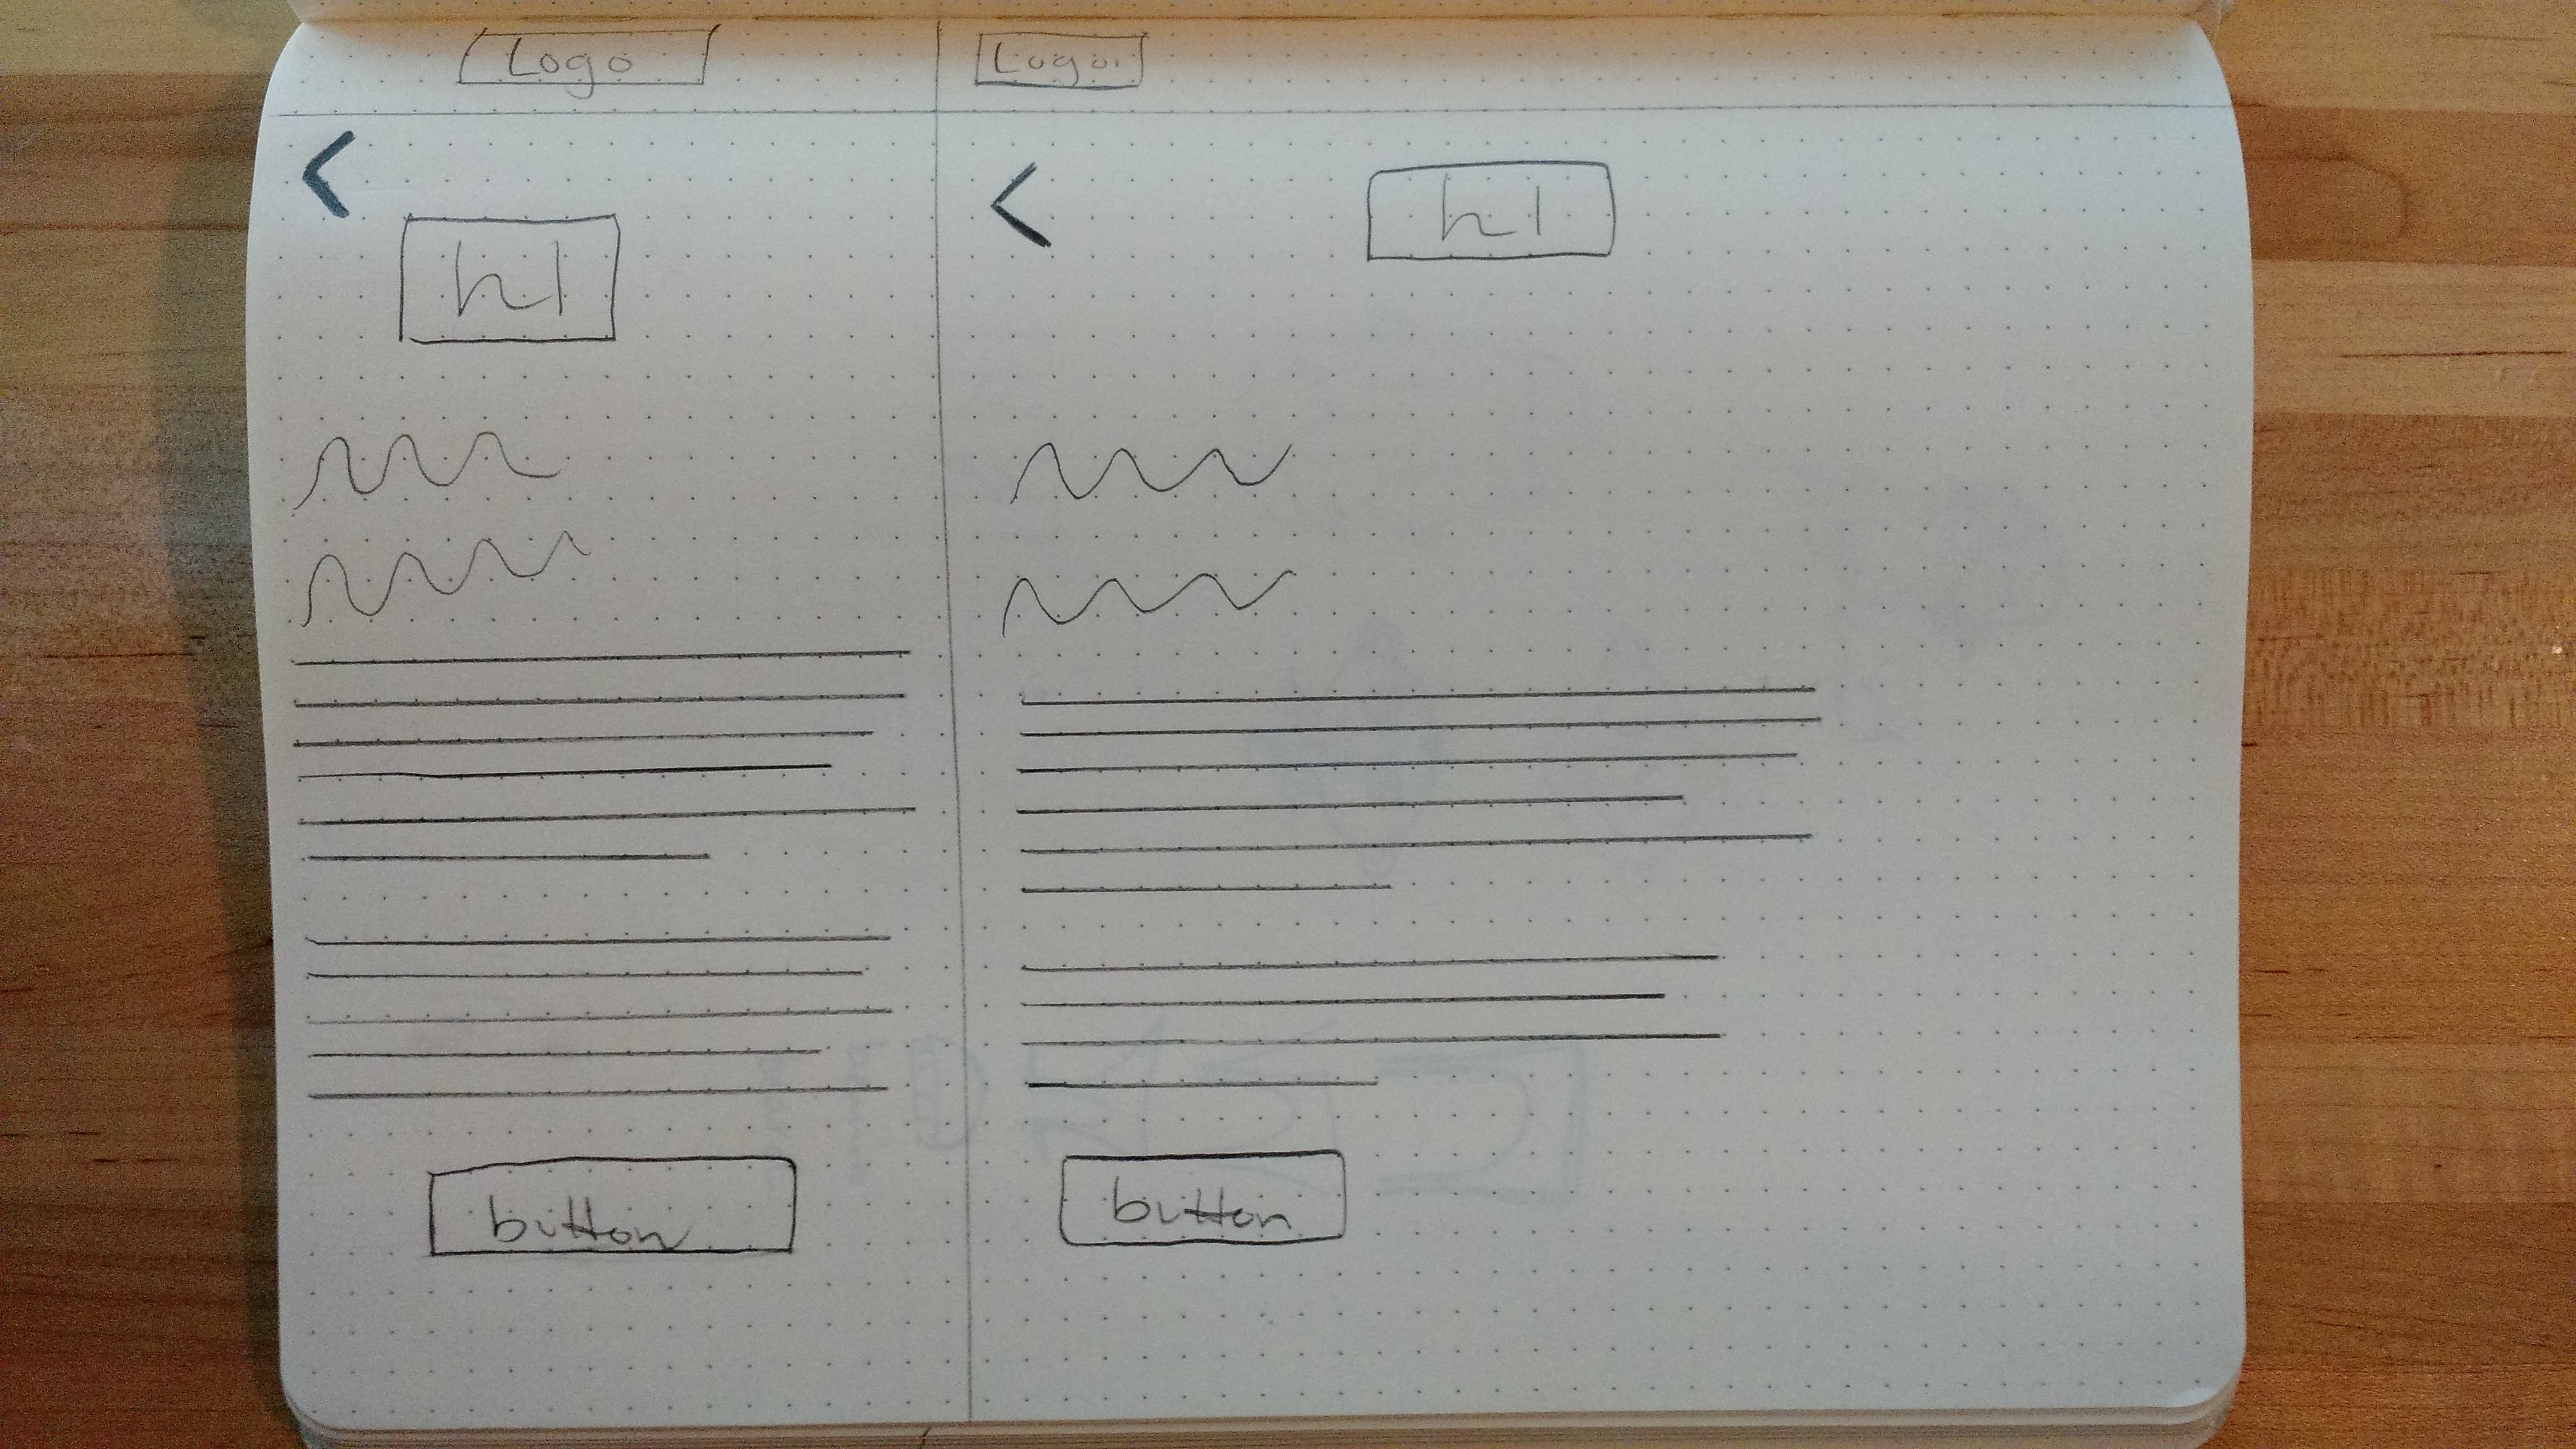 Logo
h1
button
Logo
h1
button